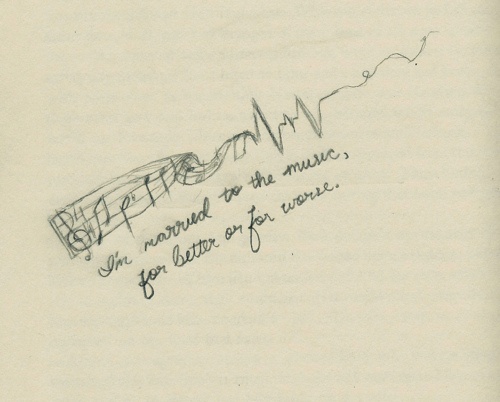 I'm married to the music,
for better or for worse.